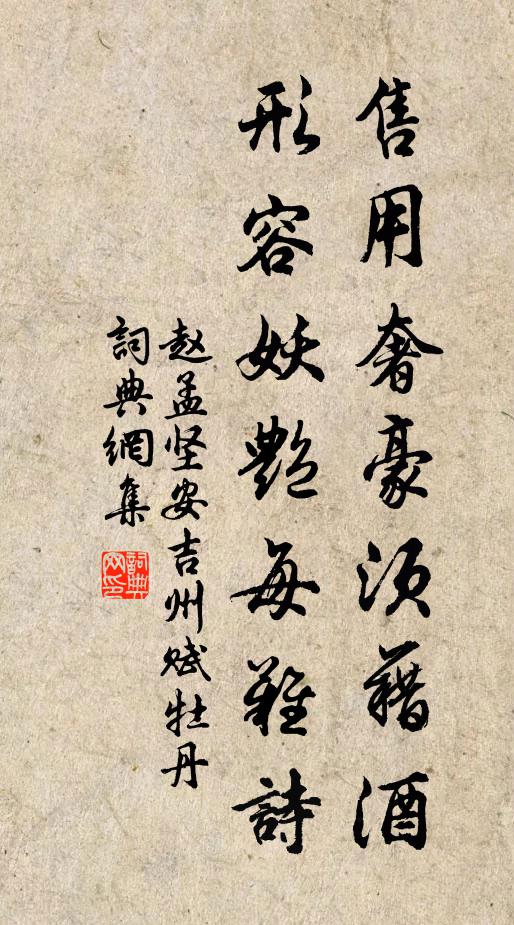 售用奢豪須藉酒
形容妖艷每難詩
赵孟坚安吉州赋牡丹
詞典網集
詞典
网印